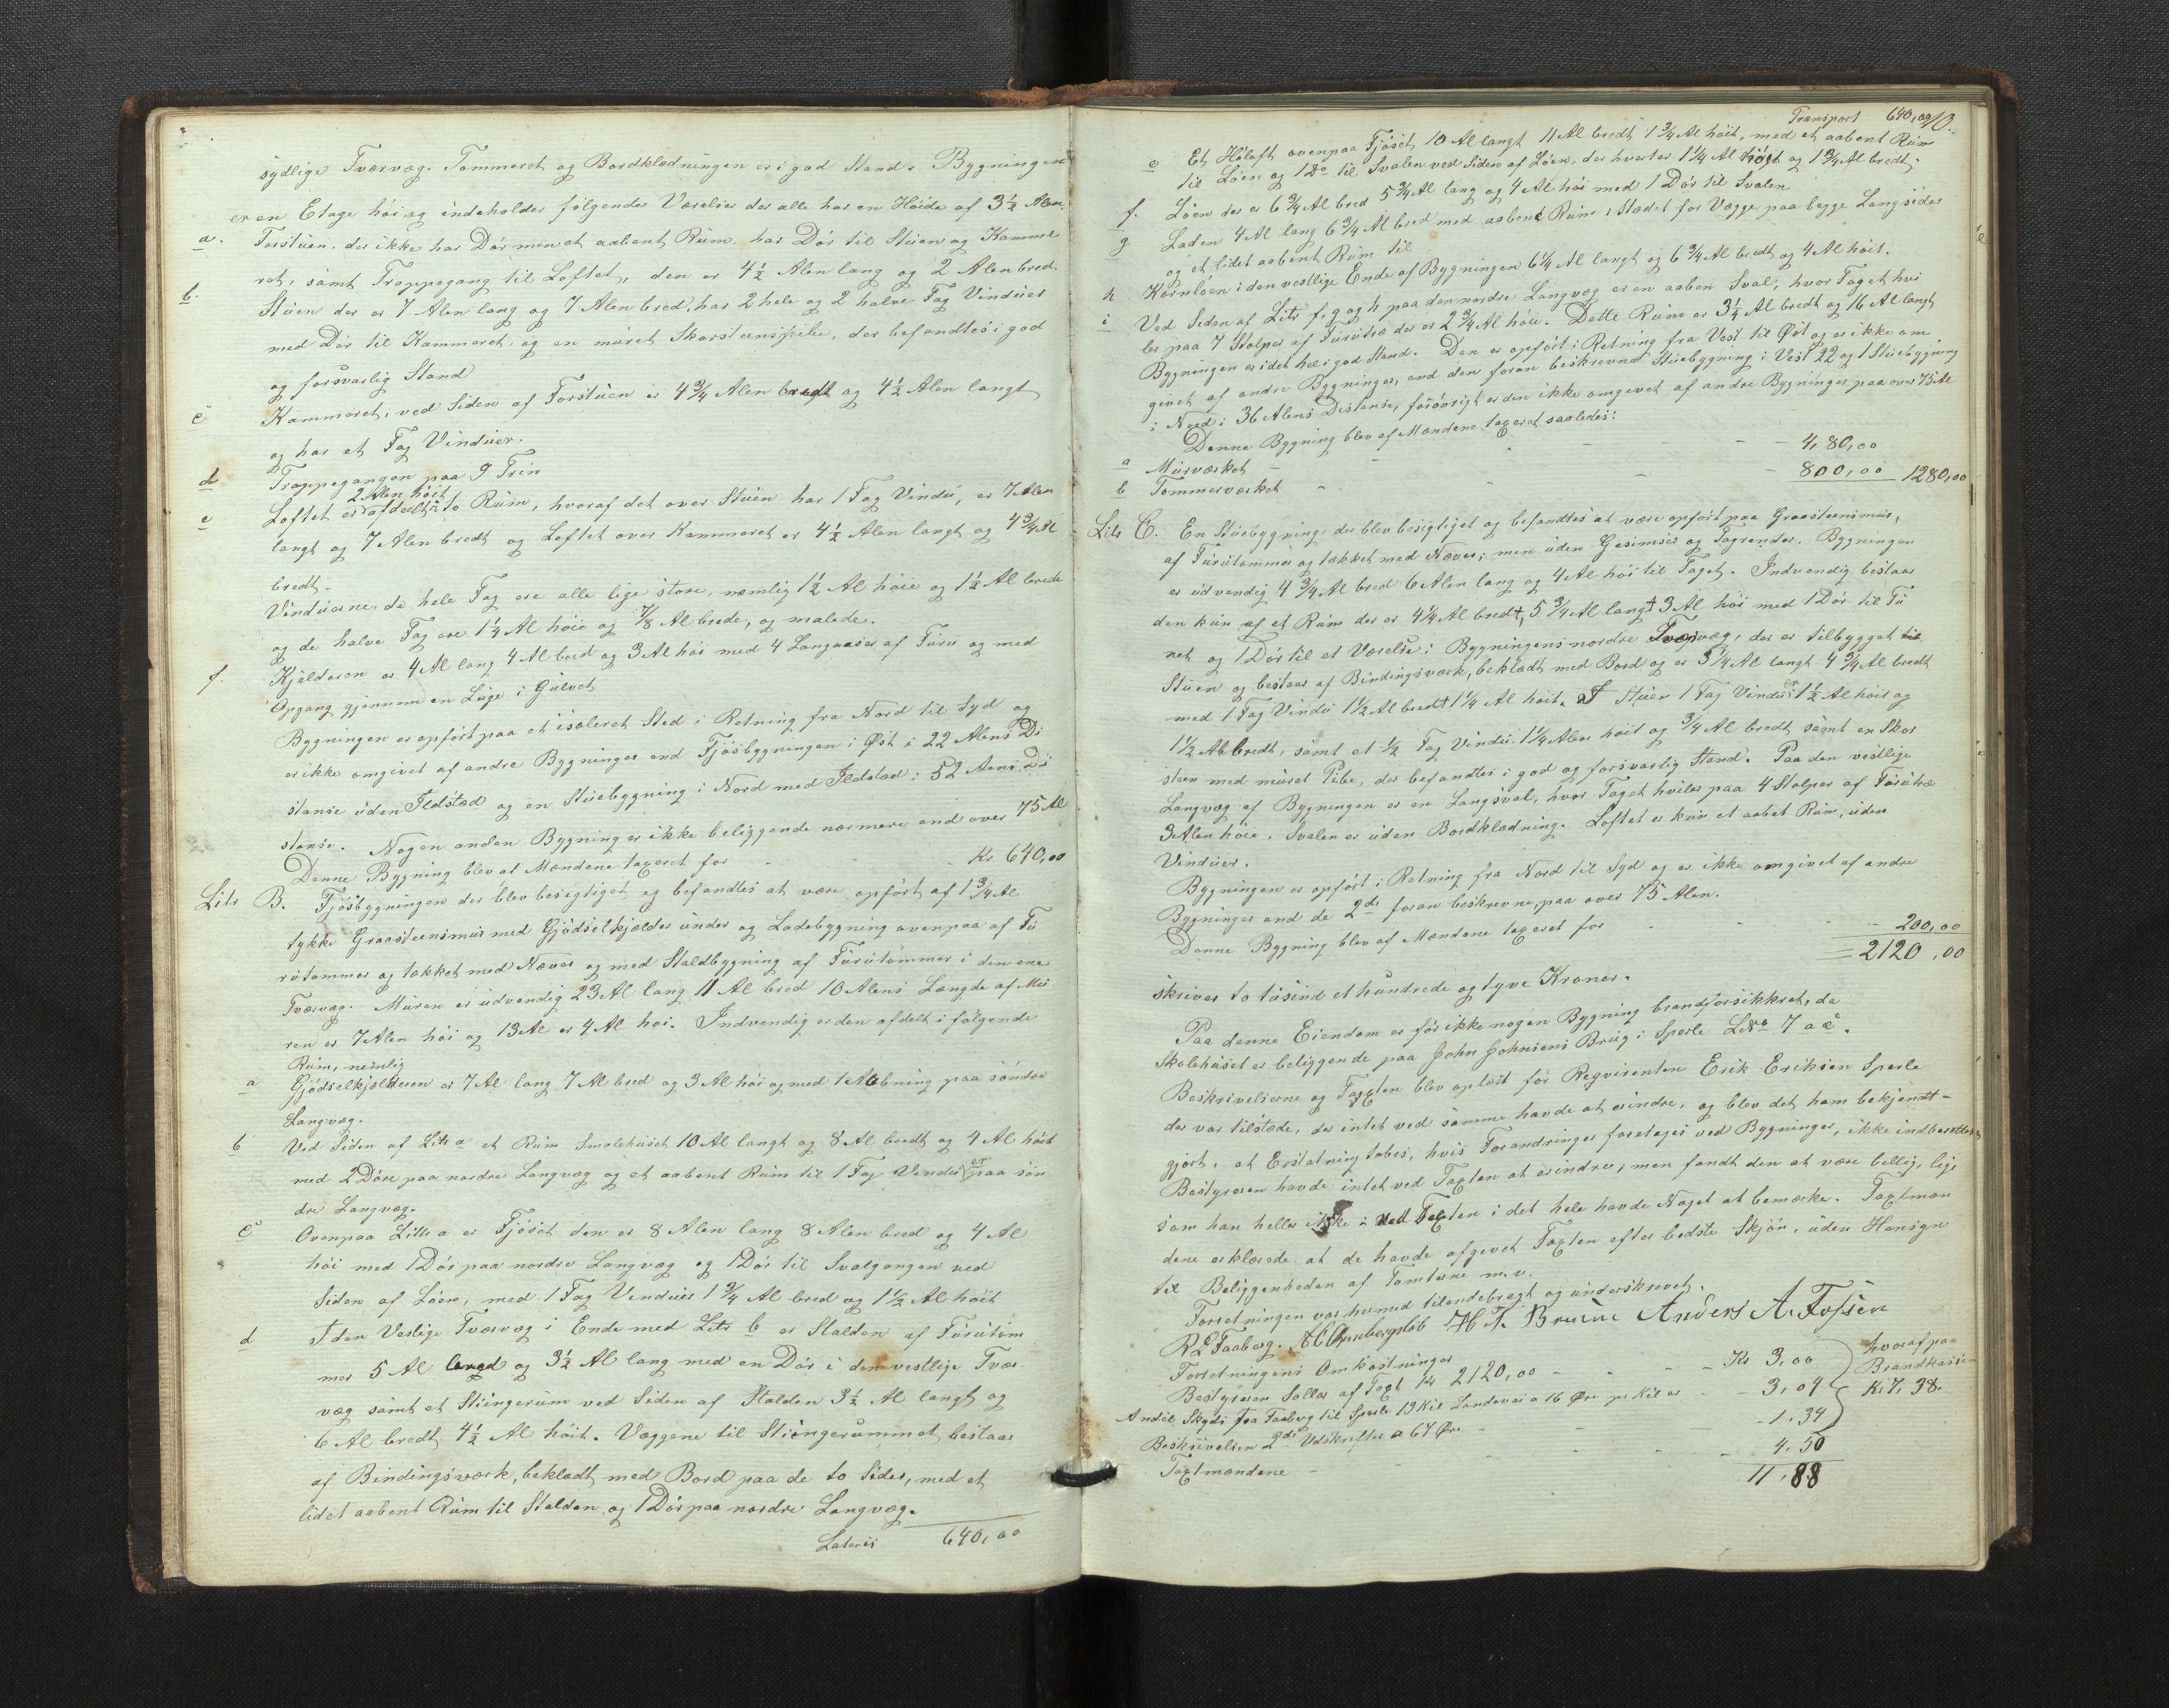 sydlige Tværvæg. Tømmeret og Bordklædningen er i god Stand. Bygningen
er en Etage høi og indeholder følgende Værelser der alle har en Høide af 3½ Alen.
a. Forstuen, der ikke har Dør men et aabent Rum, har Dør til Stuen og Kamme
ret, samt Trappegang til Loftet, den er 4½ Alen lang og 2 Alen bred.
b. Stuen der er 7 Alen lang og 7 Alen bred, har 2 hele og 2 halve Fag Vinduer
med Dør til Kammeret, og en muret Skorstenspibe, der befandtes i god
og forsvarlig Stand
c Kammeret, ved Siden af Forstuen er 4¾ Alen bredt og 4½ Alen langt
og har et Fag Vinduer.
d Trappegangen paa 9 Trin
2 Alen høit
e Loftet er afdeelt i to Rum, hvoraf det over Stuen har 1 Fag Vindu, er 7 Alen
langt og 7 Alen bredt og Loftet over Kammeret er 4½ Alen langt og 4¾ Al
bredt.
Vinduerne, de hele Fag ere alle lige store, nemlig 1½ Al høie og 1½ Al brede
og de halve Fag ere 1¼ Al høie og ⅞ Al brede, og malede.
f. Kjelderen er 4 Al lang 4 Al bred og 3 Al høi med 4 Langaaser af Furu og med
Opgang gjennem en Luge i Gulvet
Bygningen er opført paa et isoleret Sted i Retning fra Nord til Syd og
er ikke omgivet af andre Bygninger end Fjøsbygningen i Øst i 22 Alens Di
stanse uden Ildsted og en Stuebygning i Nord med Ildsted i 52 Alens Di
stanse. Nogen anden Bygning er ikke beliggende nærmere end over 75 Al
Denne Bygning blev at Mændene taxeret for - - - Kr 640,00
Litr B. Fjøsbygningen der blev besigtiget og befandtes at være opført af 1¾ Al
tykke Graasteensmur med Gjødselkjælder under og Ladebygning ovenpaa af Fu
rutømmer og tækket med Næver og med Staldbygning af Furutømmer i den ene
Tværvæg. Muren er udvendig 23 Al lang 11 Al bred 10 Alens Længde af Mu
ren er 7 Alen høi og 13 Al er 4 Al høi. Indvendig er den afdelt i følgende
Rum, nemlig
a Gjødselkjælderen er 7 Al lang 7 Al bred og 3 Al høi og med 1 Aabning paa søndre
Langvæg.
b Ved Siden af Litr a et Rum Smalehuset 10 Al langt og 8 Al bredt og 4 Al høit
med 2 Døre paa nordre Langvæg og et aabent Rum til 1 Fag Vinduer paa søn
dre Langvæg.
c Ovenpaa Litr a er Fjøset den er 8 Alen lang 8 Alen bred og 4 Al
høi med 1 Dør paa nordre Langvæg og 1 Dør til Svalgangen ved
Siden af Løen, med 1 Fag Vinduer 1¾ Al bred og 1½ Al høit
d I den Vestlige Tværvæg i Ende med Litr b er Stalden af Furutøm
mer 5 Al langd og 3½ Al lang med en Dør i den vestlige Tvær
væg samt et Stiingerum ved Siden af Stalden 3½ Al langt og
6 Al bredt 4½ Al høit. Væggene til Stiingerummet, bestaar
af Bindingsværk, beklædt med Bord paa de to Sider, med et
lidet aabent Rum til Stalden og 1 Dør paa nordre Langvæg.
Lateris 640,00
Transport 640,00 10.
e Et Høloft ovenpaa Fjøset, 10 Al langt 11 Al bredt 1¾ Al høit, med et aabent Rum
til Løen og 1 Do til Svalen ved Siden af Løen, der hvert er 1¼ Al høgt og 1¾ Al bredt.
f. Løen der er 6¾ Al bred 5¾ Al lang og 4 Al høi med 1 Dør til Svalen
g Laden 4 Al lang 6¾ Al bred med aabent Rum i Stedet for Vægge paa begge Langsider
og et lidet aabent Rum til
h Kornløen i den vestlige Ende af Bygningen 6¼ Al langt og 6¾ Al bredt og 4 Al høit.
i Ved Siden af Litr f, g og h paa den nordre Langvæg er en aaben Sval, hvor Taget hvi
ler paa 7 Stolper af Furutræ der er 2¾ Al høie. Dette Rum er 3¼ Al bredt og 16 Al langt
Bygningen er i det hele i god Stand. Den er opført i Retning fra Vest til Øst og er ikke om
givet af andre Bygninger, end den foran beskrevne Stuebygning i Vest 22 og 1 Stuebygning
i Nord i 36 Alens Distanse, forøvrigt er den ikke omgivet af andre Bygninger paa over 75 Al
Denne Bygning blev af Mændene taxeret saaledes:
a Murværket - - - - 4,80,00
b Tømmerværket - - - - 800,00 1280,00
Litr C. En Stuebygning, der blev besigtiget og befandtes at være opført paa Graasteensmur,
af Furutømmer og tækket med Næver, men uden Gesimser og Tagrender. Bygningen
er udvendig 4¾ Al bred 6 Alen lang og 4 Al høi til Taget. Indvendig bestaar
den kun af et Rum der er 4¼ Al bredt, 5¾ Al langt 3 Al høi med 1 Dør til Tu
net og 1 Dør til et Værelse i Bygningens nordre Tværvæg, der er tilbygget til
Stuen og bestaar af Bindingsværk, beklædt med Bord og er 3¼ Al langt 4¾ Al bredt
med 1 Fag Vindu 1½ Al bredt 1¼ Al høit. I Stuen 1 Fag Vinduer 1½ Al høit og
1½ Al bredt, samt et ½ Fag Vindu 1¼ Alen høit og ¾ Al bredt samt en Skor
sten med muret Pibe, der befandtes i god og forsvarlig Stand. Paa den vestlige
Langvæg af Bygningen er en Langsval, hvor Taget hviler paa 4 Stolper af Furutræ
3 Alen høie. Svalen er uden Bordklædning. Loftet er kun et aabet Rum, uden
Vinduer.
Bygningen er opført i Retning fra Nord til Syd og er ikke omgivet af andre
Bygninger end de 2de foran beskrevne, paa over 75 Alen.
Denne Bygning blev af Mændene taxeret for - - - 200,00
= 2120,00
skriver to tusind et hundrede og tyve Kroner.
Paa denne Eiendom er før ikke nogen Bygning brandforsikkret, da
Skolehuset er beliggende paa John Johnsens Brug i Sperle 7 a c.
Beskrivelserne og Taxten blev oplæst for Reqvirenten Erik Eriksen Sperle
der var tilstede, der intet ved samme havde at erindre, og blev det ham bekjendt-
gjort, at Erstatning tabes, hvis Forandringer foretages ved Bygninger, ikke indberettes
Bestyreren havde intet ved Taxten at erindre, men fandt den at være billig, lige
som han heller ikke ved Taxten i det hele havde Noget at bemærke. Taxtmæn
dene erklærede at de havde afgivet Taxten efter bedste Skjøn, uden Hensyn
til Beliggenheden af Tomterne m.v.
Forretningen var hermed tilendebragt og underskrevet.
R L Faaberg. Anders A.
Forretningens Omkostninger
Bestyreren Sallar af Taxt Kr 2120,00 - - - Kr 3,00
Andel Skyds fra Faaberg til Sperle 19 Kil Landevei a 16 Øre pr Kil er - - 3,04
Beskrivelsen 2de Udskrifter a 67 Øre - - - 1.34
Taxtmændene - - - 4.50
11,88
hvoraf paa
Brandkassen
Kr 7,38.